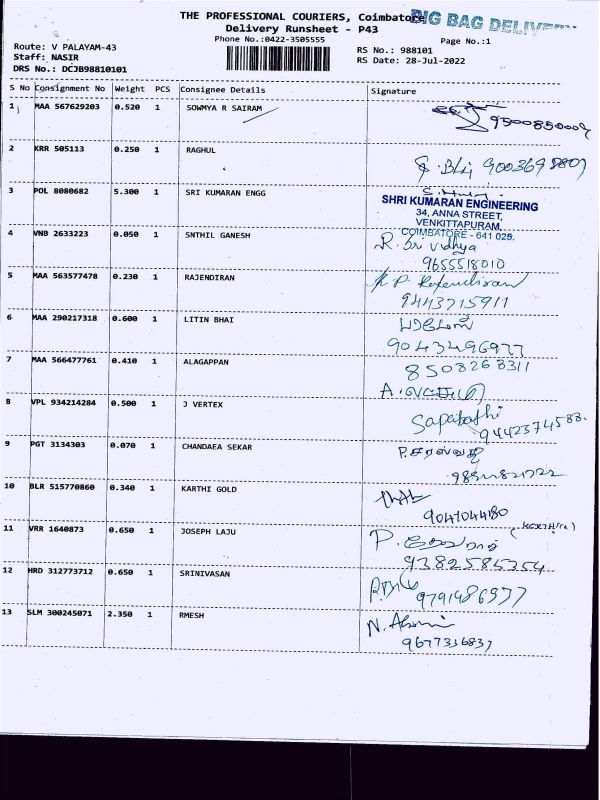 THE PROFESSIONAL COURIERS, Coimbatore
BIG BAG DELIVERY
Delivery Runsheet - P43
Phone No.:0422-3505555
Page No.:1
Route: V PALAYAM-43
Staff: NASIR
DRS No.: DCJB98810101
RS No.: 988101
RS Date: 28-Jul-2022
S No Consignment No Weight PCS Consignee Details Signature
1 MAA 567629203 0.520 1 SOWMYA R SAIRAM
2 KRR 505113 0.250 1 RAGHUL
3 POL 8080682 5.300 1 SRI KUMARAN ENGG
SHRI KUMARAN ENGINEERING
34, ANNA STREET,
VENKITTAPURAM,
COIMBATORE - 641 025.
4 VNB 2633223 0.050 1 SNTHIL GANESH R. Sri Vidhya
9655518010
5 MAA 563577478 0.230 1 RAJENDIRAN
9443715911
6 MAA 290217318 0.600 1 LITIN BHAI
9043496977
7 MAA 566477761 0.410 1 ALAGAPPAN 8508268311
8 VPL 934214284 0.500 1 J VERTEX
9442374588.
9 PGT 3134303 0.070 1 CHANDAEA SEKAR P. சரஸ்வதி
10 BLR 515770860 0.340 1 KARTHI GOLD
9047044180
11 VRR 1640873 0.650 1 JOSEPH LAJU
9382585254
12 HRD 312773712 0.650 1 SRINIVASAN
9791486977
13 SLM 300245071 2.350 1 RMESH
9677316837